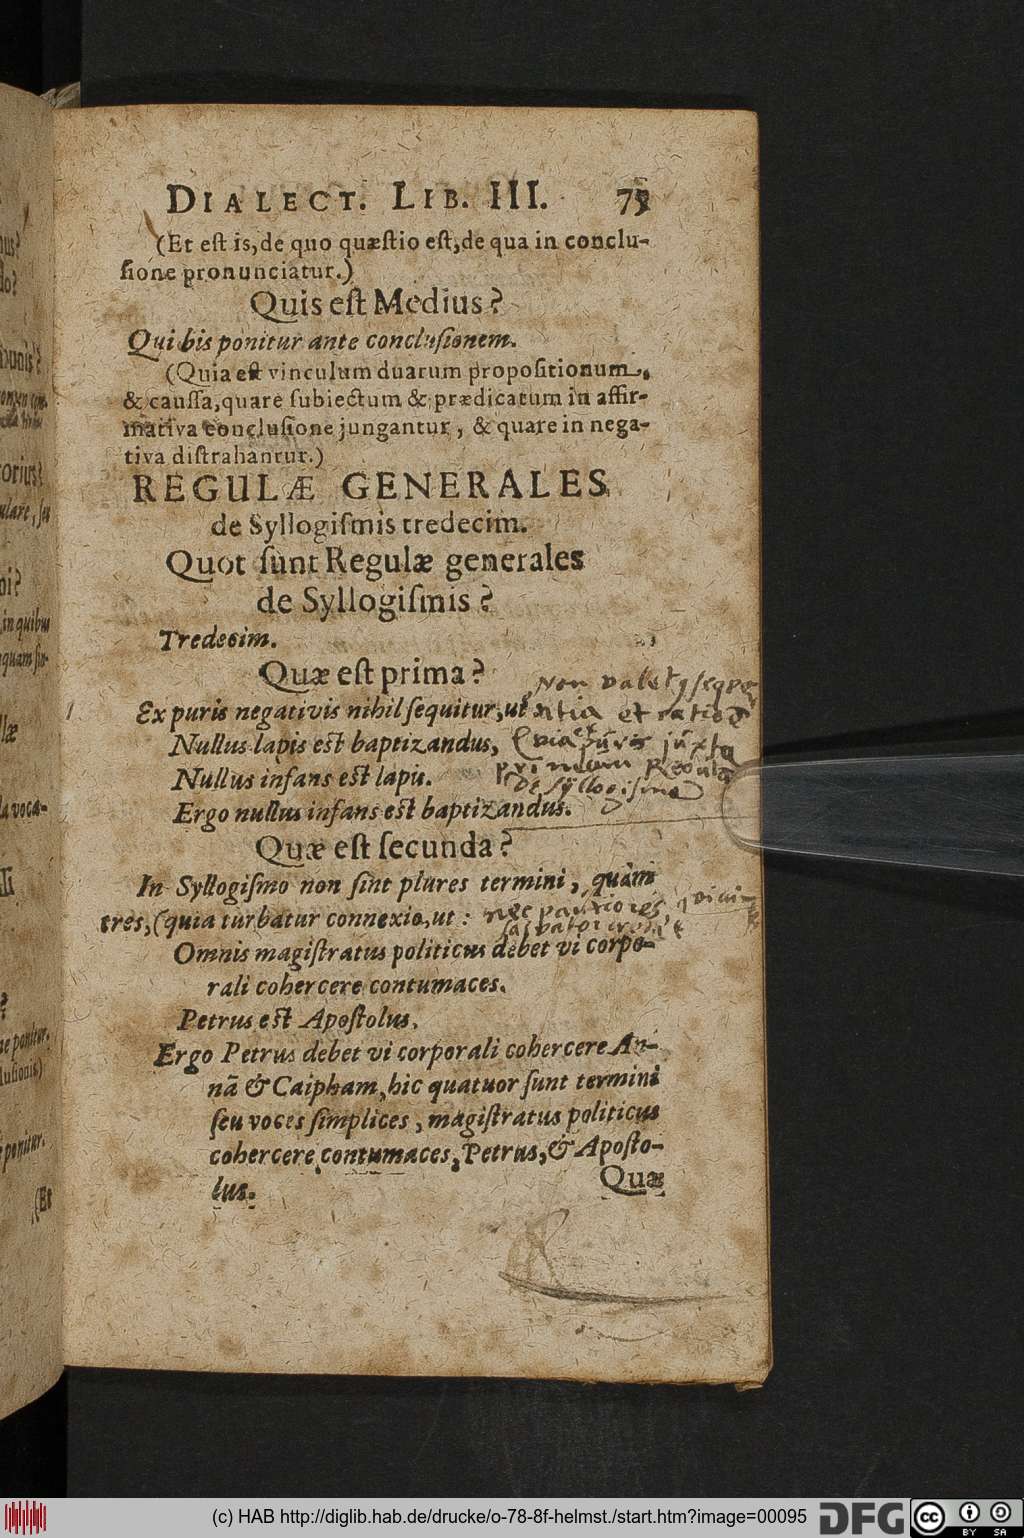 DIALECT. LIB. III.
(Et eſt is, de quo quæſtio eſt, de qua in conclu-
ſione pronunciatur.)
Quis eſt Medius?
Qui bis ponitur ante concluſionem.
(Quia eſt vinculum duarum propoſitionum,
& cauſſa, quare ſubiectum & prædicatum in affir-
mativa concluſione jungantur, & quare in nega-
tiva diſtrahantur.)
REGULÆ GENERALES
de Syllogiſmis tredecim.
Quot ſunt Regulæ generales
de Syllogiſmis?
Tredecim.
Quæ eſt prima?
Non valet
Ex puris negativis nihil ſequitur, ut
et ratio
Nullus lapis eſt baptizandus,
Quia puris juxta
Nullus infans eſt lapis.
primam Regula
de syllogismo
Ergo nullus infans eſt baptizandus.
Quæ eſt ſecunda?
In Syllogiſmo non ſint plures termini, quàm
tres, (quia turbatur connexio, ut:
nec pauciores
Omnis magiſtratus politicus debet vi corpo-
rali cohercere contumaces.
Petrus eſt Apoſtolus.
Ergo Petrus debet vi corporali cohercere An-
nã & Caipham, hic quatuor ſunt termini
ſeu voces ſimplices, magiſtratus politicus
cohercere contumaces, Petrus, & Apoſto-
lus.
Quæ
(c) HAB http://diglib.hab.de/drucke/o-78-8f-helmst./start.htm?image=00095
DFG
cc BY SA